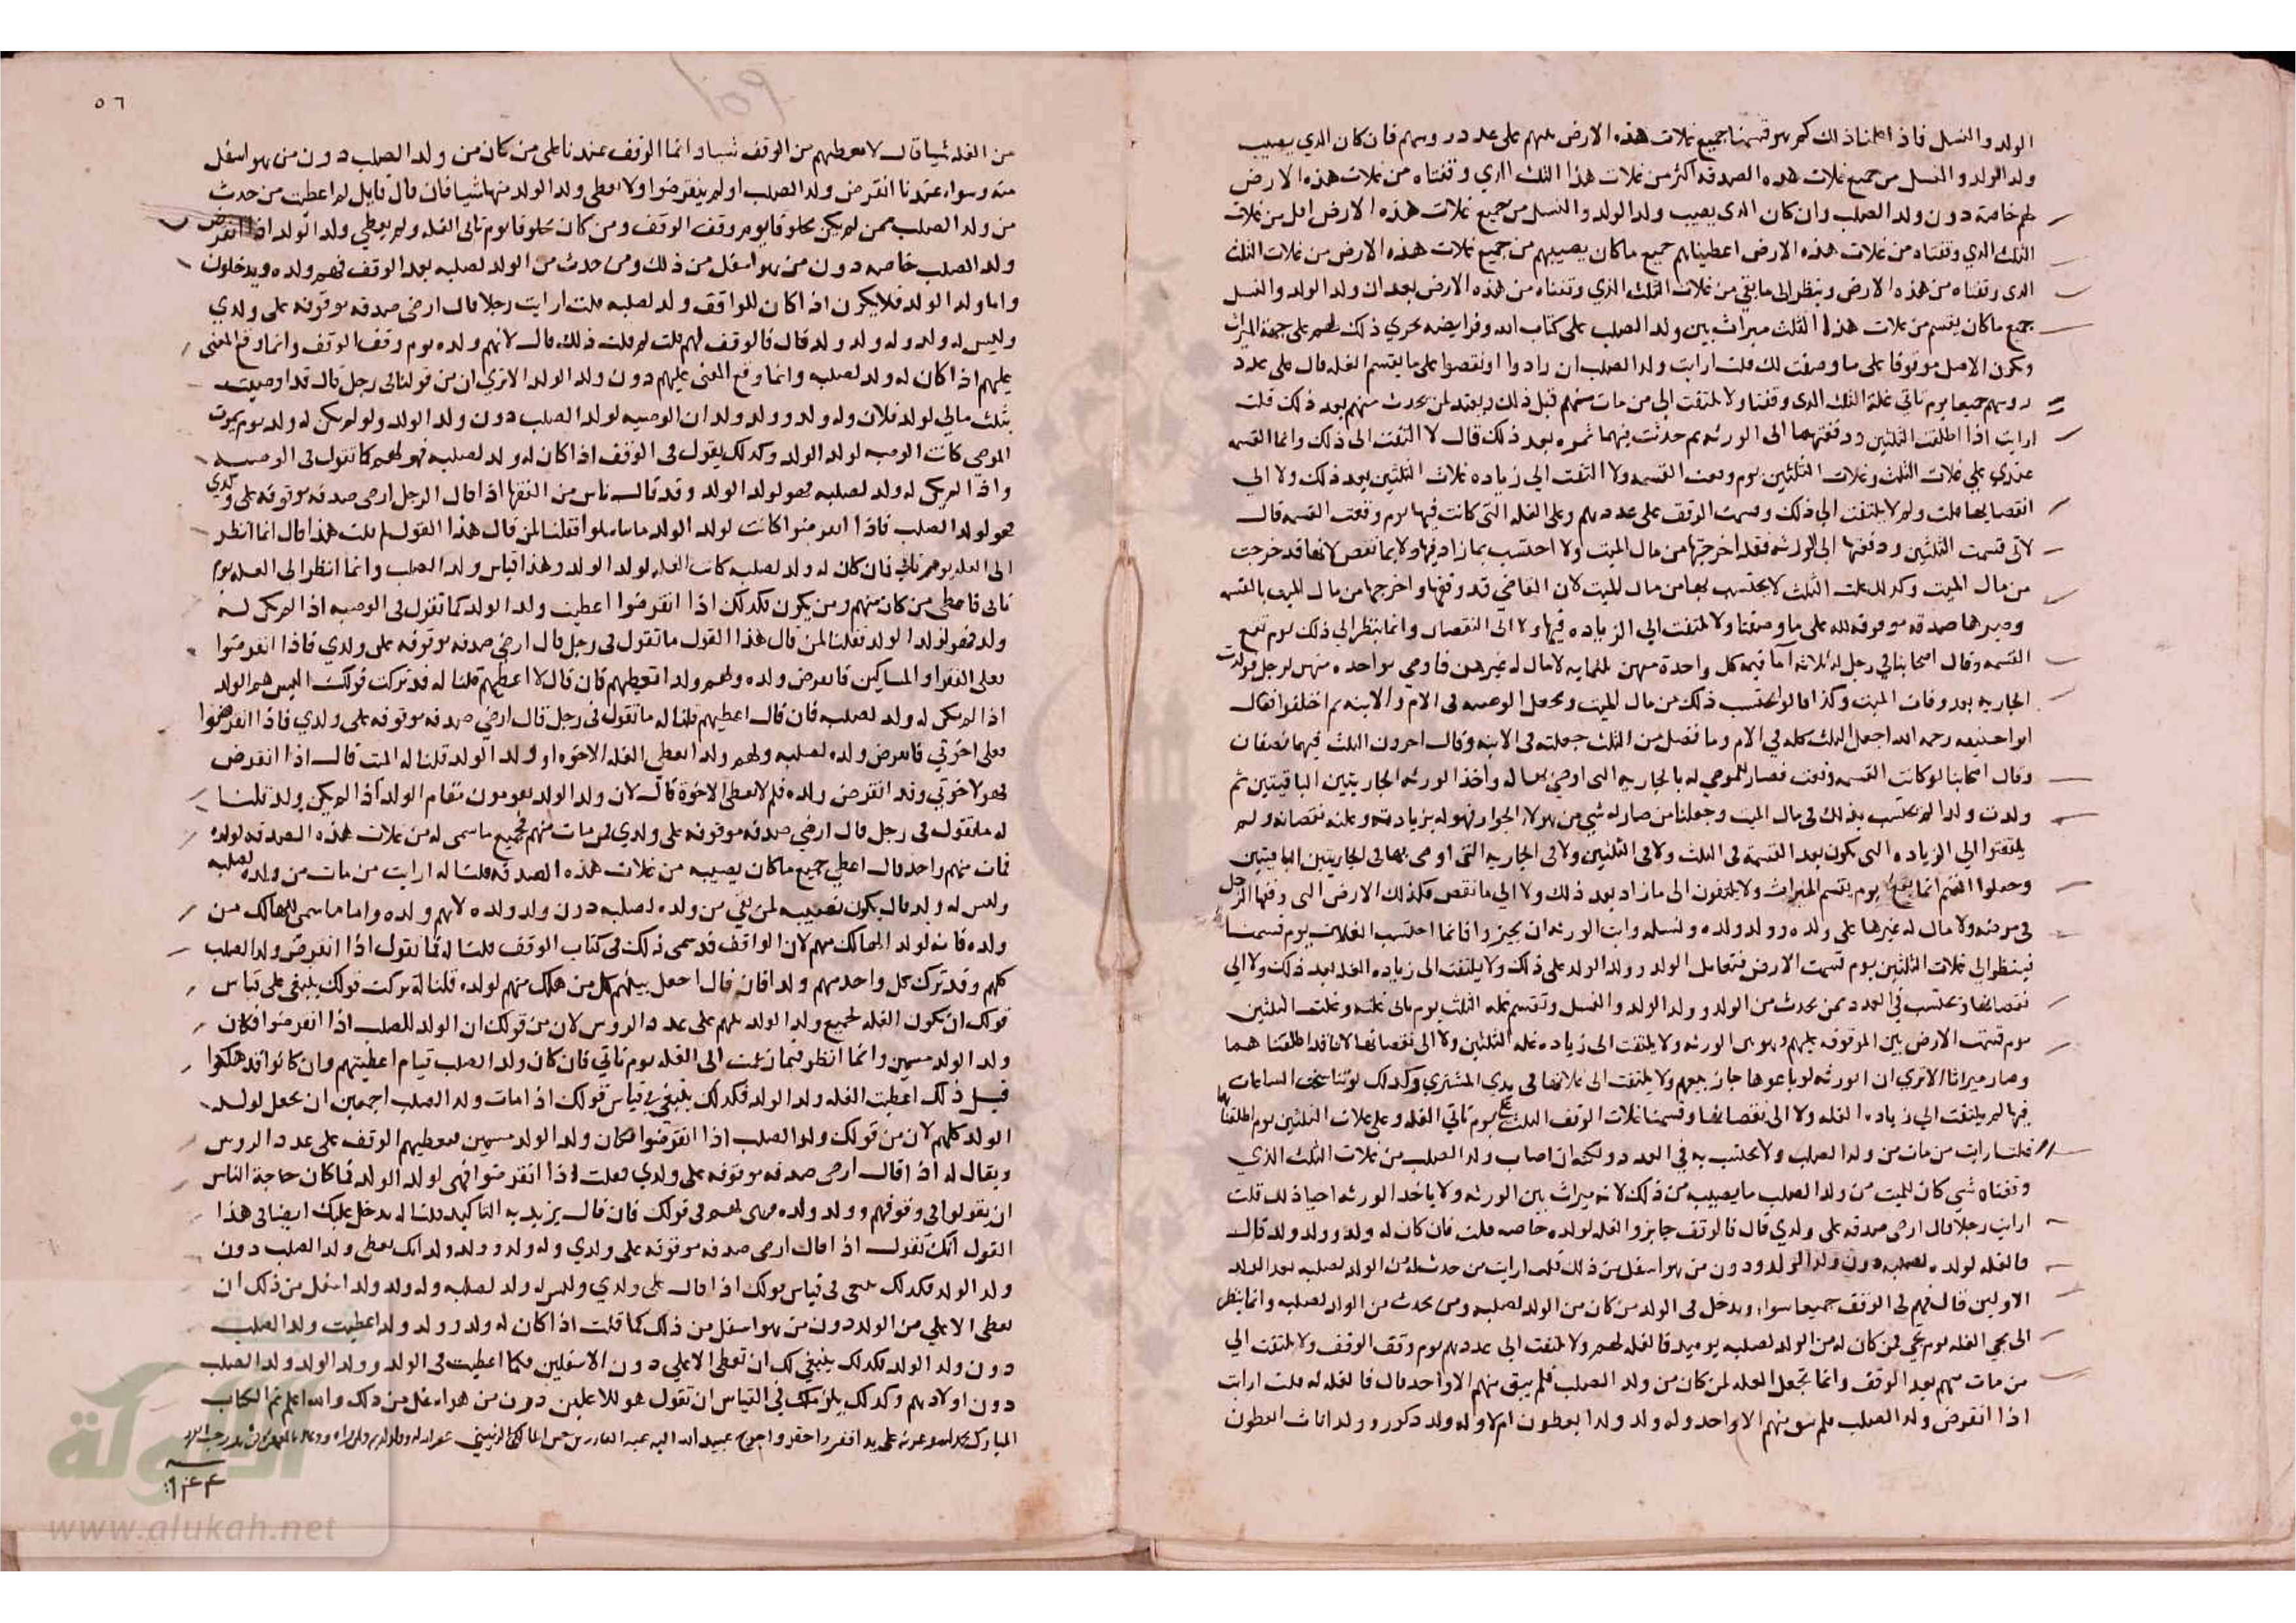 الولد والنسل فاذا اطلنا ذلك كم هو قسمنا جميع غلات هذه الارض عليهم على عدد روسهم فان كان الذي يصيب
ولد الولد والنسل من جميع غلات هذه الصدقة اكثر من غلات هذا الثلث الذي وقفناه من غلات هذه الارض
لهم خاصة دون ولد الصلب وان كان الذي يصيب ولد الولد والنسل من جميع غلات هذه الارض اقل من غلات
الثلث الذي وقفناه من غلات هذه الارض اعطيناهم جميع ما كان يصيبهم من جميع غلات هذه الارض من غلات الثلث
الذي وقفناه من هذه الارض وينظر الى ما بقي من غلات الثلث الذي وقفناه من هذه الارض بعد ان ولد الولد والنسل
جميع ما كان يقسم من غلات هذا الثلث ميراث بين ولد الصلب على كتاب الله وفرايضه يجري ذلك لهم على جهة الميراث
ويكون الاصل موقوفا على ما وصفت لك قلت ارايت ولد الصلب ان زادوا او نقصوا على ما يقسم الغله قال على عدد
روسهم جميعا يوم تاتي غلة الثلث الذي وقفنا ولا يلتفت الى من مات منهم قبل ذلك ويعتد لمن يحدث منهم بعد ذلك قلت
ارايت اذا اطلقت الثلثين ودفعتهما الى الورثه ثم حدثت فيهما ثمره بعد ذلك قال لا التفت الى ذلك وانما القسمه
عندي على غلات الثلث وغلات الثلثين يوم وقعت القسمه ولا التفت الى زياده غلات الثلثين بعد ذلك ولا الى
نقصانها قلت ولم لا يلتفت الى ذلك وقسمت الوقف على عددهم وعلى الغله التي كانت فيها يوم وقعت القسمه قال
لاني قسمت الثلثين ودفعتها الى الورثه فقد اخرجتها من مال الميت ولا احتسب بما زاد فيها ولا بما نقص لانها قد خرجت
من مال الميت وكذلك غلت الثلث لا يحتسب بها من مال الميت لان القاضي قد وقفها واخرجها من مال الميت بالقسمه
وصيرها صدقه موقوفه لله على ما وصفنا ولا يلتفت الى الزياده فيها ولا الى النقصان وانما ينظر الى ذلك يوم تقع
القسمه وقال اصحابنا في رجل له ثلاثه اما قيمة كل واحدة منهن ثلثمايه لا مال له غيرهن فاوصى بواحده منهن لرجل فولدت
الجاريه بعد وفات الميت وكذا قالوا يحتسب ذلك من مال الميت ويجعل الوصيه في الام والابنه ثم اختلفوا فقال
ابو حنيفه رحمه الله اجعل الثلث كله في الام وما فضل من الثلث جعلته في الابنه وقال اخرون الثلث فيهما نصفان
وقال اصحابنا لو كانت القسمه وقعت فصار للموصي له بالجاريه التي اوصى بها له واخذ الورثه الجاريتين الباقيتين ثم
ولدت ولدا لم يحتسب بذلك في مال الميت وجعلنا من صار له شي من هولاء الجوار فهو له بزيادته وعليه نقصانه ولم
يلتفتوا الى الزياده التي تكون بعد القسمة في الثلث ولا في الثلثين ولا في الجاريه التي اوصى بها في الجاريتين الباقيتين
وجعلوا القسم انما يقع يوم يقسم الميراث ولا يلتفتون الى ما زاد بعد ذلك ولا الى ما نقص فكذلك الارض التي وقفها الرجل
في مرضه ولا مال له غيرها على ولده وولد ولده ونسله وابت الورثه ان يجيزوا فانما احتسب الغلات يوم قسمنا
فينظر الى غلات الثلثين يوم قسمت الارض فتعامل الولد وولد الولد على ذلك ولا يلتفت الى زياده الغله بعد ذلك ولا الى
نقصانها وتحتسب في العدد بمن يحدث من الولد وولد الولد والنسل وتقسم غله الثلث يوم تاتي غلته وغلت الثلثين
يوم قسمت الارض بين الموقوفه عليهم وبين الورثه ولا يلتفت الى زياده غله الثلثين ولا الى نقصانها لانا قد اطلقنا هما
وصار ميراثا الا ترى ان الورثه لو باعوها جاز بيعهم ولا يلتفت الى غلاتها في يدي المشتري وكذلك لو تناسخت الساعات
فيها لم يلتفت الى زياده الغله ولا الى نقصانها وقسمنا غلات الوقف الثلث على يوم تاتي الغله وعلى غلات الثلثين يوم اطلقناها
قلت ارايت من مات من ولد الصلب ولا يحتسب به في العدد ولكنه ان اصاب ولد الصلب من غلات الثلث الذي
وقفناه شي كان للميت من ولد الصلب ما يصيبه من ذلك لانه ميراث بين الورثه ولا ياخذ الورثه احيا ذلك قلت
ارايت رجلا قال ارضي صدقه على ولدي قال فالوقف جايز والغله لولده خاصه قلت فان كان له ولد وولد ولد قال
فالغله لولده لصلبه دون ولد الولد ودون من هو اسفل من ذلك قلت ارايت من حدث له من الولد لصلبه بعد الولد
الاولين قال فهم في الوقف جميعا سواء ويدخل في الولد من كان من الولد لصلبه ومن يحدث من الولد لصلبه وانما ينظر
الى مجي الغله يوم تجي فمن كان له من الولد لصلبه يوميد فالغله لهم ولا يلتفت الى عددهم يوم وقف الوقف ولا يلتفت الى
من مات منهم بعد الوقف وانما تجعل الغله لمن كان من ولد الصلب فلم يبق منهم الا واحد قال فالغله له قلت ارايت
اذا انقرض ولد الصلب فلم يبق منهم الا واحد وله ولد وولد ايعطون ام لا وله ولد ذكور وولد اناث ايعطون
٥٦
من الغله شيا قال لا نعطيهم من الوقف شيا وانما الوقف عندنا على من كان من ولد الصلب دون من هو اسفل
منه وسواء عندنا انقرض ولد الصلب او لم ينقرضوا ولا اعطي ولد الولد منها شيا فان قال قايل لم اعطيت من حدث
من ولد الصلب ممن لم يكن مخلوقا يوم وقف الوقف ومن كان مخلوقا يوم تاتي الغله ولم يعطي ولد الولد اذا انقرض
ولد الصلب خاصه دون من هو اسفل من ذلك ومن حدث من الولد لصلبه بعد الوقف فهم ولده ويدخلون
واما ولد الولد فلا يكون اذا كان للواقف ولد لصلبه قلت ارايت رجلا قال ارضي صدقه موقوفه على ولدي
وليس له ولد وله ولد ولد قال فالوقف لهم قلت لم قلت ذلك قال لانهم ولده يوم وقف الوقف وانما وقع المعنى
عليهم اذا كان له ولد لصلبه وانما وقع المعنى عليهم دون ولد الولد الا ترى ان من قولنا في رجل قال قد اوصيت
بثلث مالي لولد فلان وله ولد وولد ولد ان الوصيه لولد الصلب دون ولد الولد ولو لم يكن له ولد يوم يموت
الموصي كانت الوصيه لولد الولد وكذلك يقول في الوقف اذا كان له ولد لصلبه فهو لهم كما تقول في الوصيه
واذا لم يكن له ولد لصلبه فهو لولد الولد وقد قال ناس من الفقها اذا قال الرجل ارضي صدقه موقوفه على ولدي
فهو لولد الصلب فاذا انقرضوا كانت لولد الولد ما تناسلوا فقلنا لمن قال هذا القول لم قلت هذا قال انما انظر
الى الغله يوم تاتي فان كان له ولد لصلبه كانت الغله لولد الولد وهذا قياس ولد الصلب وانما انظر الى الغله يوم
تاتي فاعطي من كان منهم ومن يكون فكذلك اذا انقرضوا اعطيت ولد الولد كما تقول في الوصيه اذا لم يكن له
ولد فهو لولد الولد فقلنا لمن قال هذا القول ما تقول في رجل قال ارضي صدقه موقوفه على ولدي فاذا انقرضوا
فعلى الفقرا والمساكين فانقرض ولده ولهم ولد اتعطيهم فان قال لا اعطيهم قلنا له قد تركت قولك اليس هم الولد
اذا لم يكن له ولد لصلبه فان قال اعطيهم قلنا له ما تقول في رجل قال ارضي صدقه موقوفه على ولدي فاذا انقرضوا
فعلى اخوتي فانقرض ولده لصلبه ولهم ولد ايعطى الغله الاخوه او ولد الولد قلنا له اليس قال اذا انقرض
فهو لاخوتي وقد انقرض ولده فلم لا يعطي الاخوة قال لان ولد الولد يقومون مقام الولد اذا لم يكن ولد قلنا
له ما تقول في رجل قال ارضي صدقه موقوفه على ولدي فمن مات منهم فجميع ما سمى له من غلات هذه الصدقه لولده
فمات منهم واحد قال اعطي جميع ما كان يصيبه من غلات هذه الصدقه قلنا له ارايت من مات من ولده لصلبه
وليس له ولد قال يكون نصيبه لمن بقي من ولده لصلبه دون ولد ولده لانهم ولده واما ما سمى للهالك من
ولده فانه لولد الهالك منهم لان الواقف قد سمى ذلك في كتاب الوقف قلنا له فما تقول اذا انقرض ولد الصلب
كلهم وقد ترك كل واحد منهم ولدا فان قال اجعل بينهم كل من هلك منهم لولده قلنا له تركت قولك ينبغي على قياس
قولك ان يكون الغله لجميع ولد الولد عليهم على عدد الروس لان من قولك ان الولد للصلب اذا انقرضوا فكان
ولد الولد مسمين وانما انظر فيما زعمت الى الغله يوم تاتي فان كان ولد الصلب قيام اعطيتهم وان كانوا قد هلكوا
قبل ذلك اعطيت الغله ولد الولد فكذلك ينبغي في قياس قولك اذا مات ولد الصلب اجمعين ان يجعل لولد
الولد كلهم لان من قولك ولد الصلب اذا انقرضوا فكان ولد الولد مسمين فيعطيهم الوقف على عدد الروس
ويقال له اذا قال ارضي صدقه موقوفه على ولدي فقلت اذا انقرضوا فهي لولد الولد فما كان حاجة الناس
ان يقولوا في وقوفهم وولد ولده فهي لهم في قولك فان قال يزيد به التاكيد قلنا له يدخل عليك ايضا في هذا
القول انك تقول اذا قال ارضي صدقه موقوفه على ولدي وله ولد وولد ولد انك تعطي ولد الصلب دون
ولد الولد فكذلك يجي في قياس قولك اذا قال على ولدي وليس له ولد لصلبه وله ولد ولد اسفل من ذلك ان
تعطى الاعلي من الولد دون من هو اسفل من ذلك كما قلت اذا كان له ولد وولد ولد اعطيت ولد الصلب
دون ولد الولد فكذلك ينبغي لك ان تعطي الاعلي دون الاسفلين فكما اعطيت في الولد وولد الولد ولد الصلب
دون اولادهم وكذلك يلزمك في القياس ان تقول هو للاعلين دون من هو اسفل من ذلك والله اعلم تم الكتاب
المبارك بحمد الله وعونه على يد افقر واحقر واحوج عبيد الله اليه عبد القادر بن
الألوكة
www.alukah.net